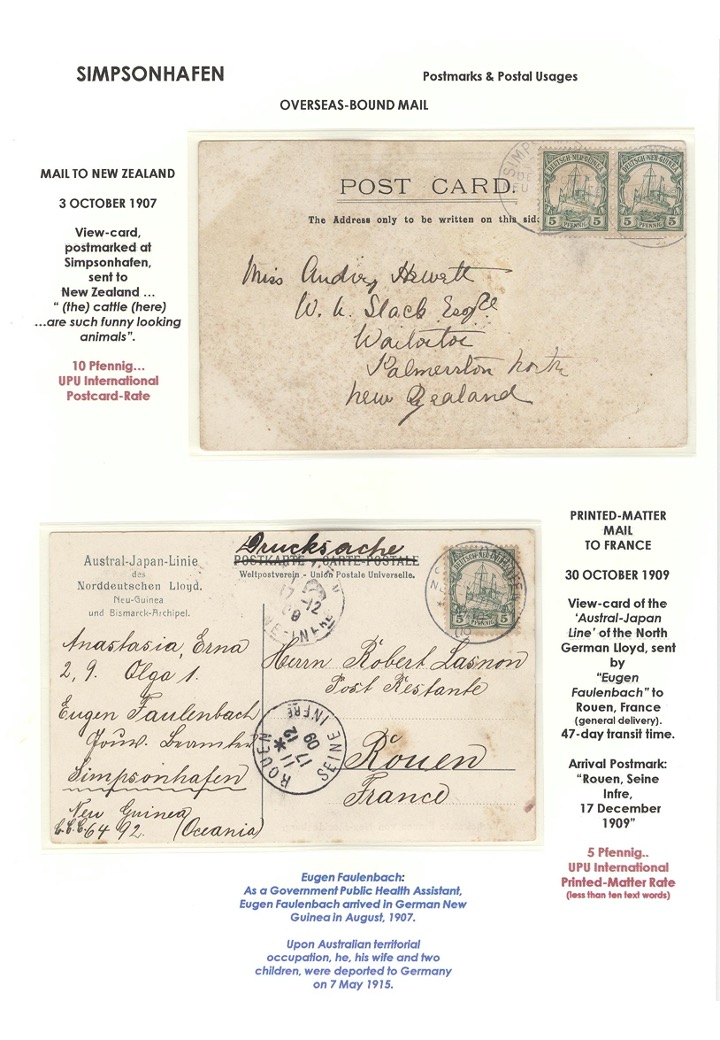 SIMPSONHAFEN
Postmarks & Postal Usages
OVERSEAS-BOUND MAIL
MAIL TO NEW ZEALAND
3 OCTOBER 1907
View-card,
postmarked at
Simpsonhafen,
sent to
New Zealand ...
" (the) cattle (here)
...are such funny looking
animals".
10 Pfennig...
UPU International
Postcard-Rate
POST CARD.
The Address only to be written on this side
DEUTSCH-NEU-GUINEA
5 PFENNIG 5
DEUTSCH-NEU-GUINEA
5 PFENNIG 5
Miss Audrey Hewett
W. H. Slack Esqre
Palmerston North
New Zealand
Austral-Japan-Linie
des
Norddeutschen Lloyd.
Neu-Guinea
und Bismarck-Archipel.
Drucksache
POSTKARTE - CARTE POSTALE
Weltpostverein - Union Postale Universelle.
DEUTSCH-NEU-GUINEA
5 PFENNIG 5
Anastasia, Erna
2, 9. Olga 1.
Eugen Faulenbach
Simpsonhafen
Neu Guinea
(Oceania)
Herrn Robert Lasnon
Post Restante
Rouen
France
ROUEN
17 12 09
SEINE INFRE
PRINTED-MATTER
MAIL
TO FRANCE
30 OCTOBER 1909
View-card of the
'Austral-Japan
Line' of the North
German Lloyd, sent
by
"Eugen
Faulenbach" to
Rouen, France
(general delivery).
47-day transit time.
Arrival Postmark:
"Rouen, Seine
Infre,
17 December
1909"
5 Pfennig..
UPU International
Printed-Matter Rate
(less than ten text words)
Eugen Faulenbach:
As a Government Public Health Assistant,
Eugen Faulenbach arrived in German New
Guinea in August, 1907.
Upon Australian territorial
occupation, he, his wife and two
children, were deported to Germany
on 7 May 1915.